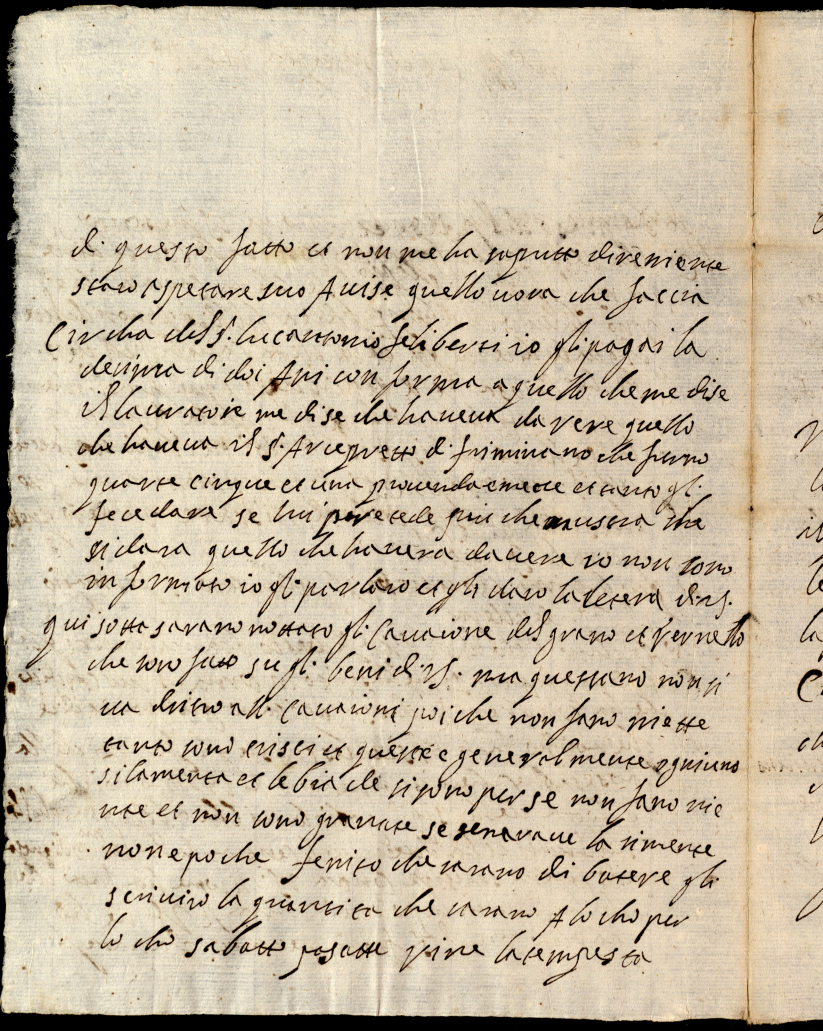 di questo fatto et non me ha saputto dire niente
staro aspetare suo Auise quello vora che faccia
Circha del S.r lucantonio feliberti io gli pagai la
decima di doi Ani con forma a quello che me dise
il lauratore me dise che haueua da vere quello
che haueua il S.r Arcepretto di friminiano che furno
quarte cinque et una prouenda e meze et tanto gli
fece dare se lui pretede piu che musera che
si dara quello che hauera da uere io non sono
informato io gli parlaro et gli daro la letera di VS.
qui sotto sarano nottato gli Cauaione del grano et
che sono fato su gli beni di VS. ma questano non si
ua drito alli Cauaioni poi che non fano niette
tanto sono tristi et questo e generalmente ogniuno
si lamenta et le biade si sono perse non fano nie
nte et non sono granate se senarave la simente
non e poche fenito che sarano di batere gli
scriuiro la quantita che sarano A locho per
lo cho sabatto pasatte vine la tempesta